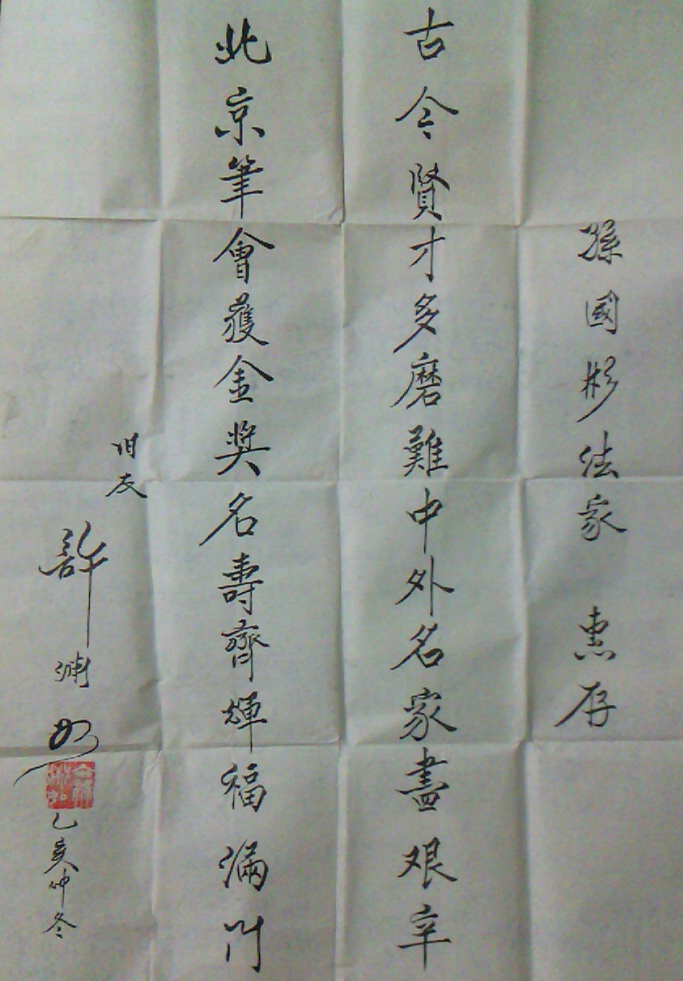 孫國彬法家 惠存
古今賢才多磨難中外名家盡艱辛
北京筆會獲金奬名壽齊輝福滿門
旧友
許渊如
乙亥仲冬